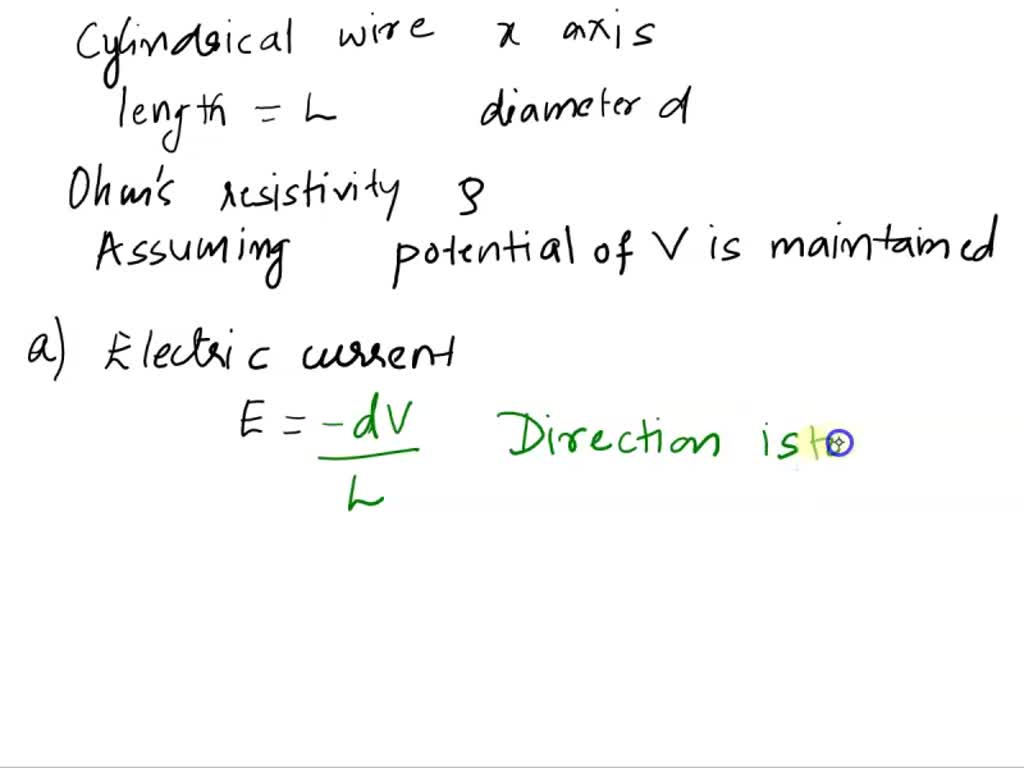 Cylindrical wire x axis
length = L diameter d
Ohm's resistivity ρ
Assuming potential of V is maintained
a) Electric current
E = -dV/L Direction is